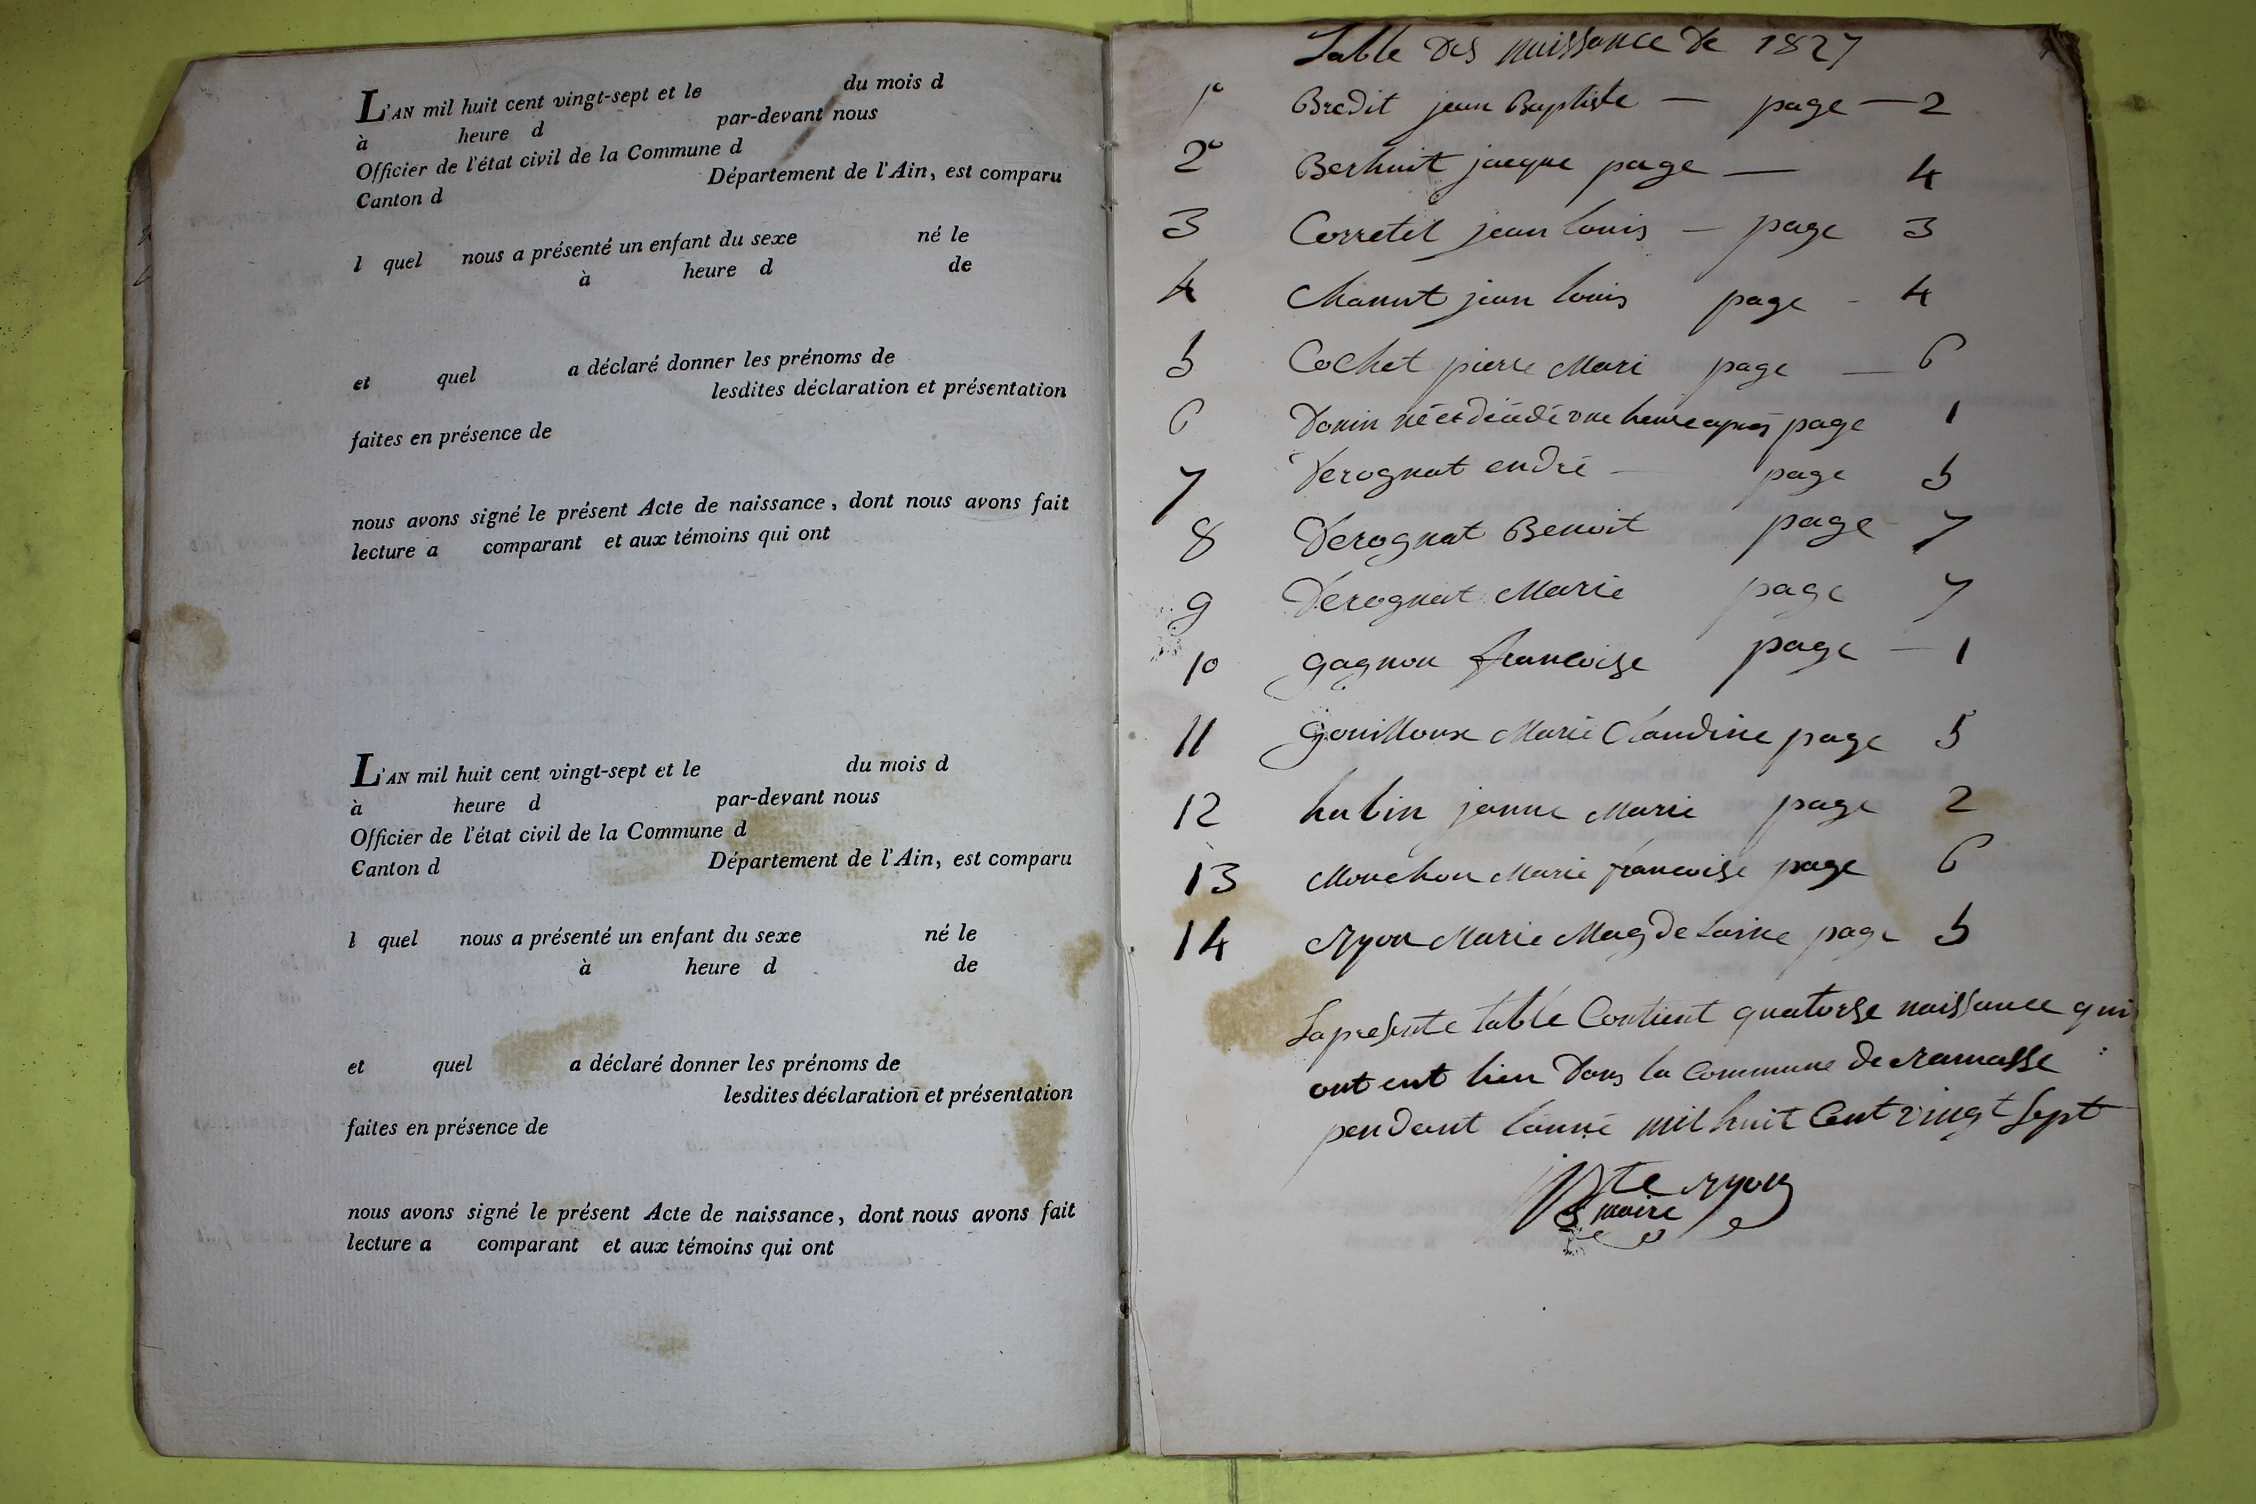 L'AN mil huit cent vingt-sept et le du mois d
à heure d par-devant nous
Officier de l'état civil de la Commune d
Canton d Département de l'Ain, est comparu
l quel nous a présenté un enfant du sexe né le
à heure d de
et quel a déclaré donner les prénoms de
lesdites déclaration et présentation
faites en présence de
nous avons signé le présent Acte de naissance, dont nous avons fait
lecture a comparant et aux témoins qui ont
L'AN mil huit cent vingt-sept et le du mois d
à heure d par-devant nous
Officier de l'état civil de la Commune d
Canton d Département de l'Ain, est comparu
l quel nous a présenté un enfant du sexe né le
à heure d de
et quel a déclaré donner les prénoms de
lesdites déclaration et présentation
faites en présence de
nous avons signé le présent Acte de naissance, dont nous avons fait
lecture a comparant et aux témoins qui ont
Table des naissance de 1827
1° Bredit jean Baptiste — page — 2
2° Berhuit jacque page — 4
3 Corretel jean louis — page 3
4 Chanut jean louis page - 4
5 Cochet pierre Mari page — 6
6 Donin né et décédé une heure après page 1
7 Derognat endré — page 5
8 Derognat Benoit page 7
9 Derognat Marie page 7
10 gagnon francoise page — 1
11 gouilloux Marie Claudine page 5
12 hubin janne Marie page 2
13 Mouchon Marie francoise page 6
14 ryon Marie Magdelaine page 5
La presente table Contient quatorse naissance qui
ont eut lieu Dans la Commune de ramasse
pendant lanné mil huit Cent vingt Sept
ryon
maire